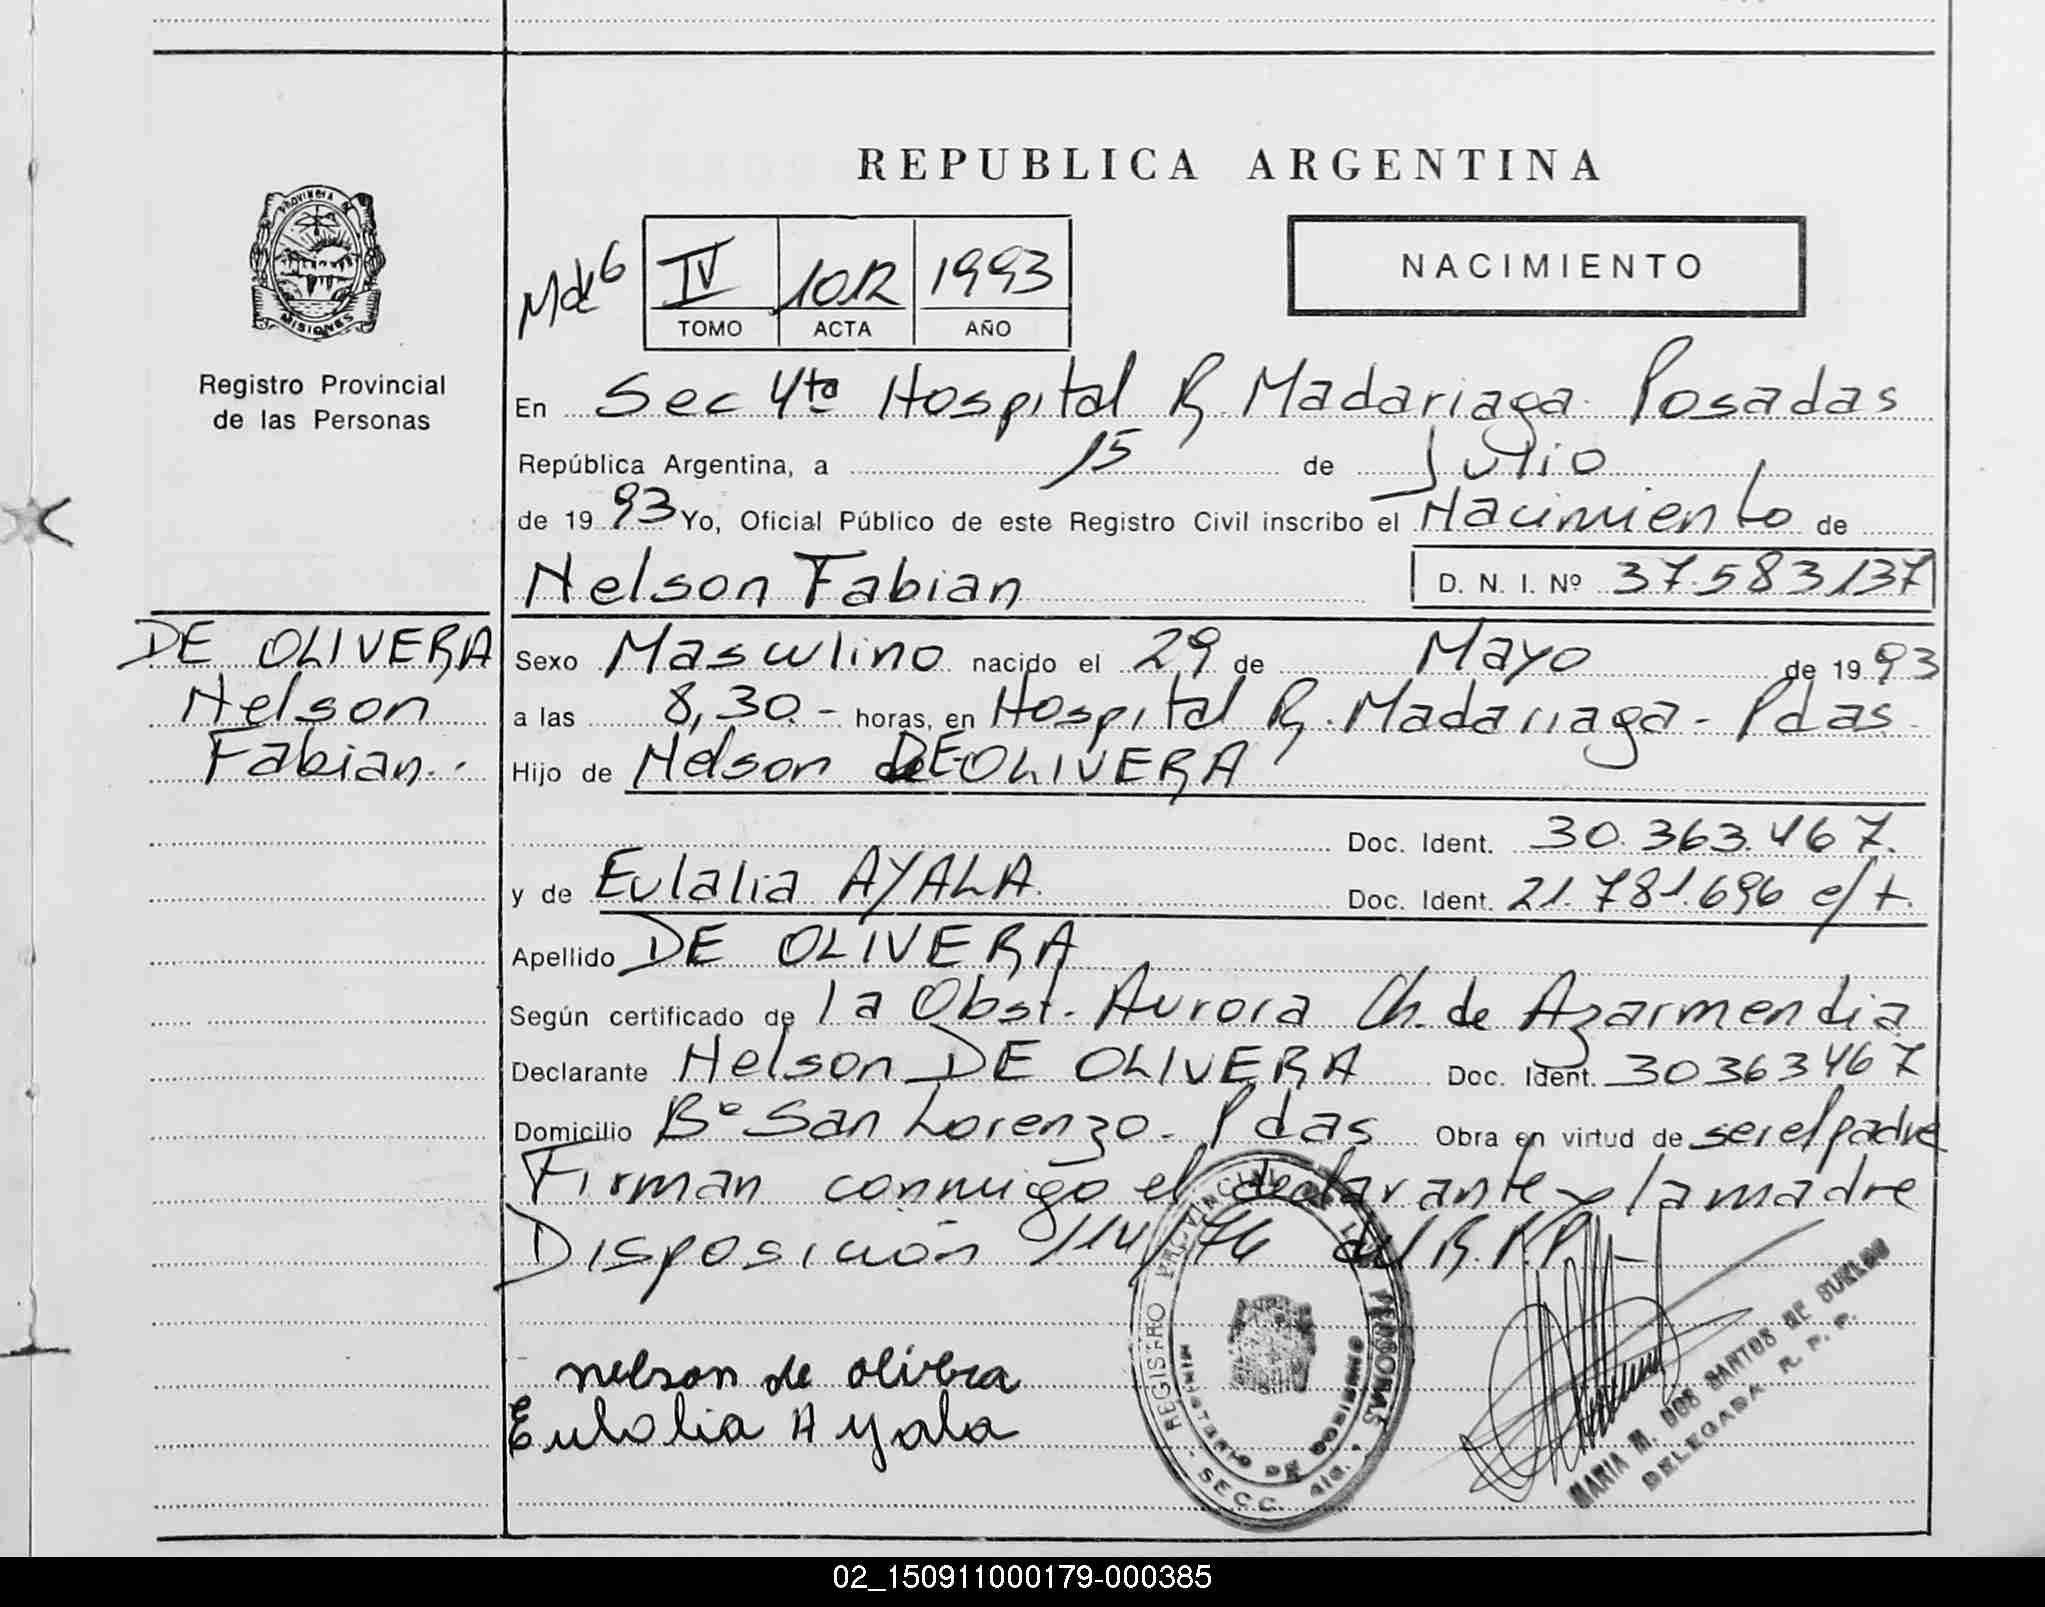 REPUBLICA ARGENTINA
NACIMIENTO
PROVINCIA DE
MISIONES
Registro Provincial
de las Personas
IV 1012 1993
TOMO ACTA AÑO
En Sec 4ta Hospital R. Madariaga Posadas
República Argentina, a 15 de Julio
de 1993 Yo, Oficial Público de este Registro Civil inscribo el Nacimiento de
Nelson Fabian D. N. I. Nº 37.583.137
DE OLIVERA
Nelson
Fabian.
Sexo Masculino nacido el 29 de Mayo de 1993
a las 8,30.- horas, en Hospital R. Madariaga - Pdas.
Hijo de Nelson DE OLIVERA
Doc. Ident. 30.363.467.
y de Eulalia AYALA. Doc. Ident. 21.781.696 e/t.
Apellido DE OLIVERA
Según certificado de la Obst. Aurora Ch. de Azarmendia
Declarante Nelson DE OLIVERA Doc. Ident. 30363467
Domicilio Bº San Lorenzo - Pdas Obra en virtud de ser el padre
Firman conmigo el declarante y la madre
Disposición 114/76 del R.P.P.-
nelson de olivera
Eulalia Ayala
REGISTRO PROVINCIAL DE LAS PERSONAS
MINISTERIO DE GOBIERNO
SECC. 4ta.
MARIA M. DOS SANTOS DE SUELDO
DELEGADA R. P. P.
02_150911000179-000385